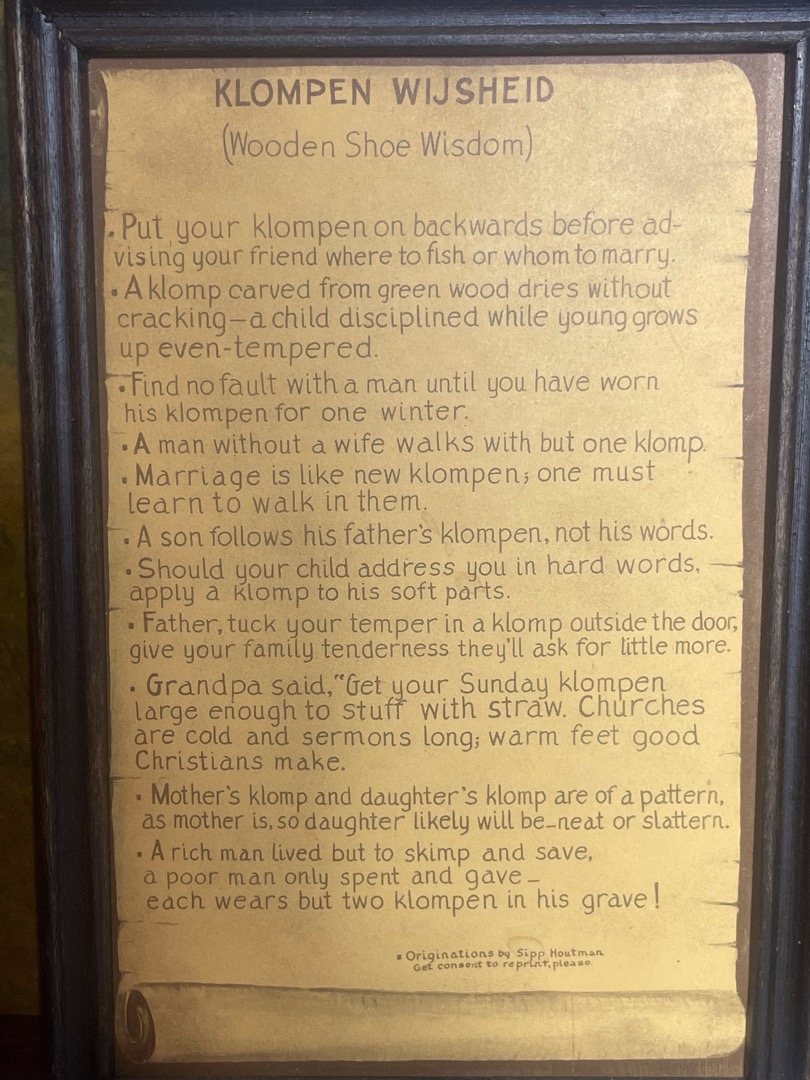 KLOMPEN WIJSHEID
(Wooden Shoe Wisdom)
• Put your klompen on backwards before ad-
vising your friend where to fish or whom to marry.
• A klomp carved from green wood dries without
cracking—a child disciplined while young grows
up even-tempered.
• Find no fault with a man until you have worn
his klompen for one winter.
• A man without a wife walks with but one klomp.
• Marriage is like new klompen; one must
learn to walk in them.
• A son follows his father's klompen, not his words.
• Should your child address you in hard words,
apply a klomp to his soft parts.
• Father, tuck your temper in a klomp outside the door,
give your family tenderness they'll ask for little more.
• Grandpa said, "Get your Sunday klompen
large enough to stuff with straw. Churches
are cold and sermons long; warm feet good
Christians make.
• Mother's klomp and daughter's klomp are of a pattern,
as mother is, so daughter likely will be—neat or slattern.
• A rich man lived but to skimp and save,
a poor man only spent and gave—
each wears but two klompen in his grave!
• Originations by Sipp Houtman
Get consent to reprint, please.